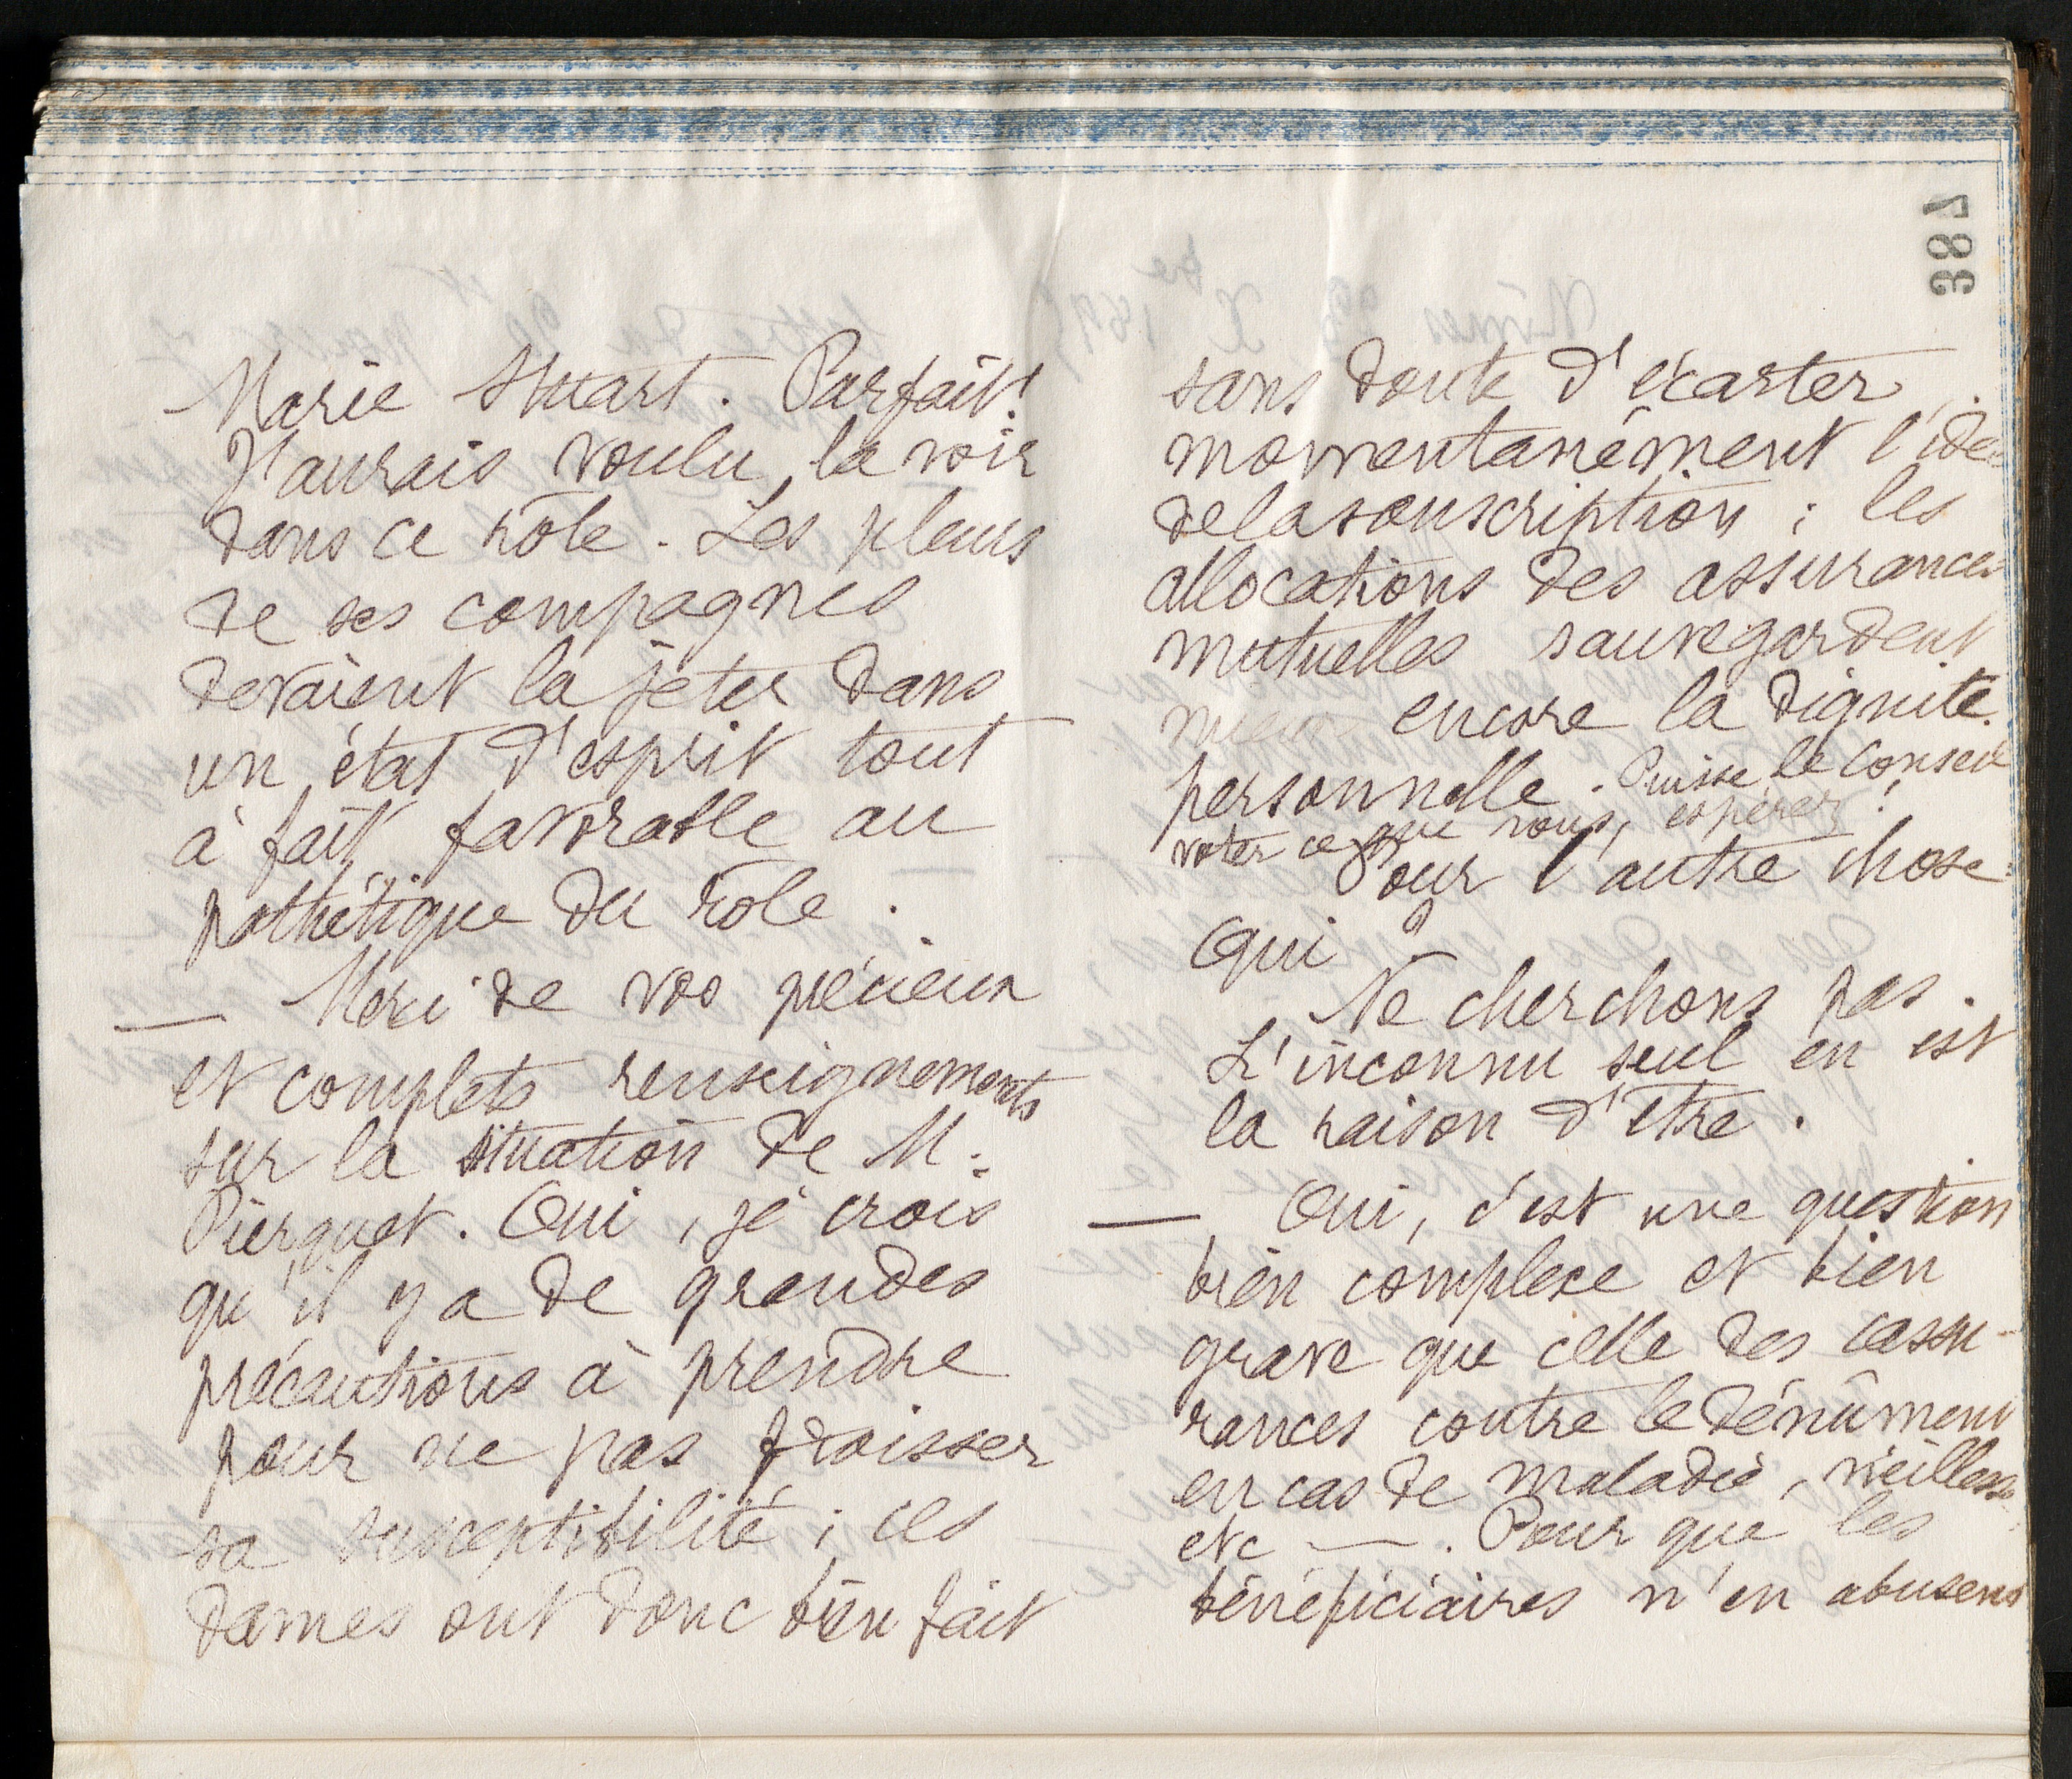 387
Marie Stuart. Parfait!
J'aurais voulu la voir
dans ce rôle. Les pleurs
de ses compagnes
devaient la jeter dans
un état d'esprit tout
à fait favorable au
pathétique du rôle.
— Merci de vos précieux
et complets renseignements
sur la situation de M.
Pierquet. Oui, je crois
qu'il y a de grandes
précautions à prendre
pour ne pas froisser
sa susceptibilité; ces
dames ont donc bien fait
sans doute d'écarter
momentanément l'idée
de la souscription; les
allocations des assurances
mutuelles sauvegardent
mieux encore la dignité
personnelle. Puisse le Conseil
voter ce que vous espérez!
Pour l'autre chose:
Qui?
Ne cherchons pas.
L'inconnu seul en est
la raison d'être.
— Oui, c'est une question
bien complexe et bien
grave que celle des assu-
rances contre le dénûment
en cas de maladie, vieillesse
etc —. Pour que les
bénéficiaires n'en abusent